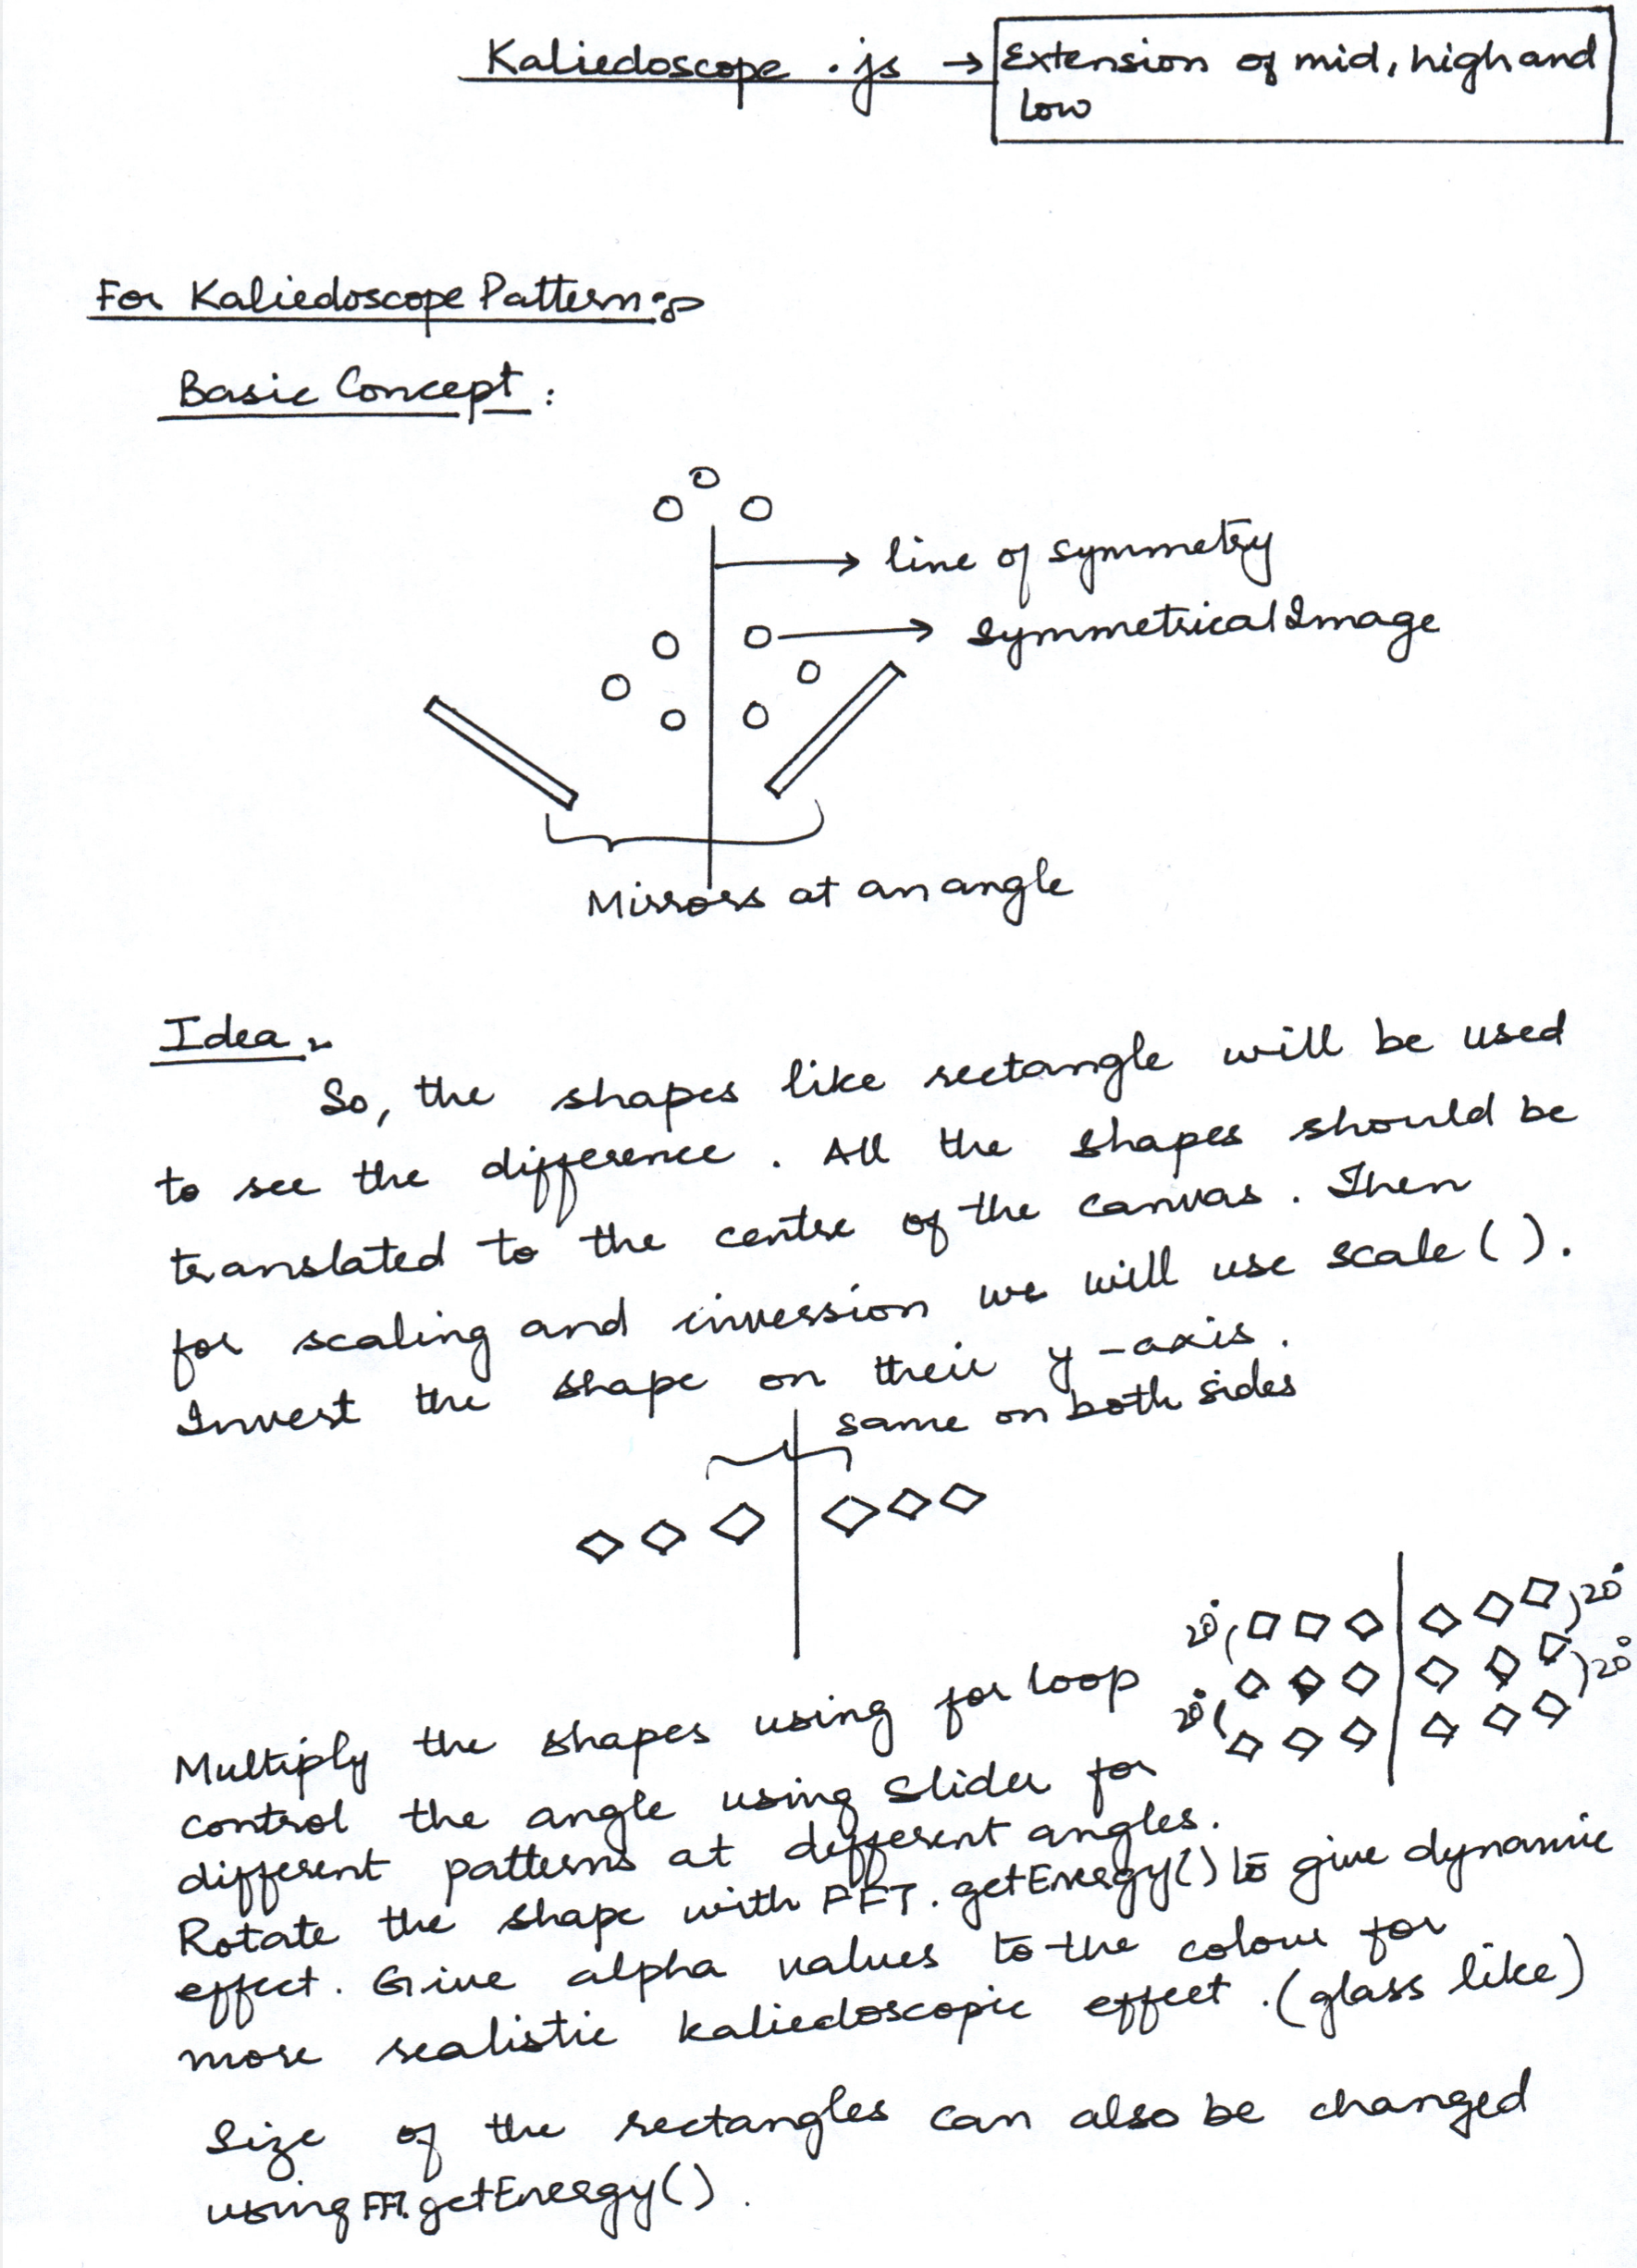 Kaliedoscope.js → Extension of mid, high and
low
For Kaliedoscope Pattern:-
Basic Concept:
line of symmetry
Symmetrical Image
Mirrors at an angle
Idea
So, the shapes like rectangle will be used
to see the difference. All the shapes should be
translated to the centre of the canvas. Then
for scaling and inversion we will use scale().
Invert the shape on their y-axis.
same on both sides
20°
20°
20°
20°
Multiply the shapes using for loop
control the angle using slider for
different patterns at different angles.
Rotate the shape with FFT.getEnergy() to give dynamic
effect. Give alpha values to the colour for
more realistic kaliedoscopic effect. (glass like)
Size of the rectangles can also be changed
using FFT.getEnergy().